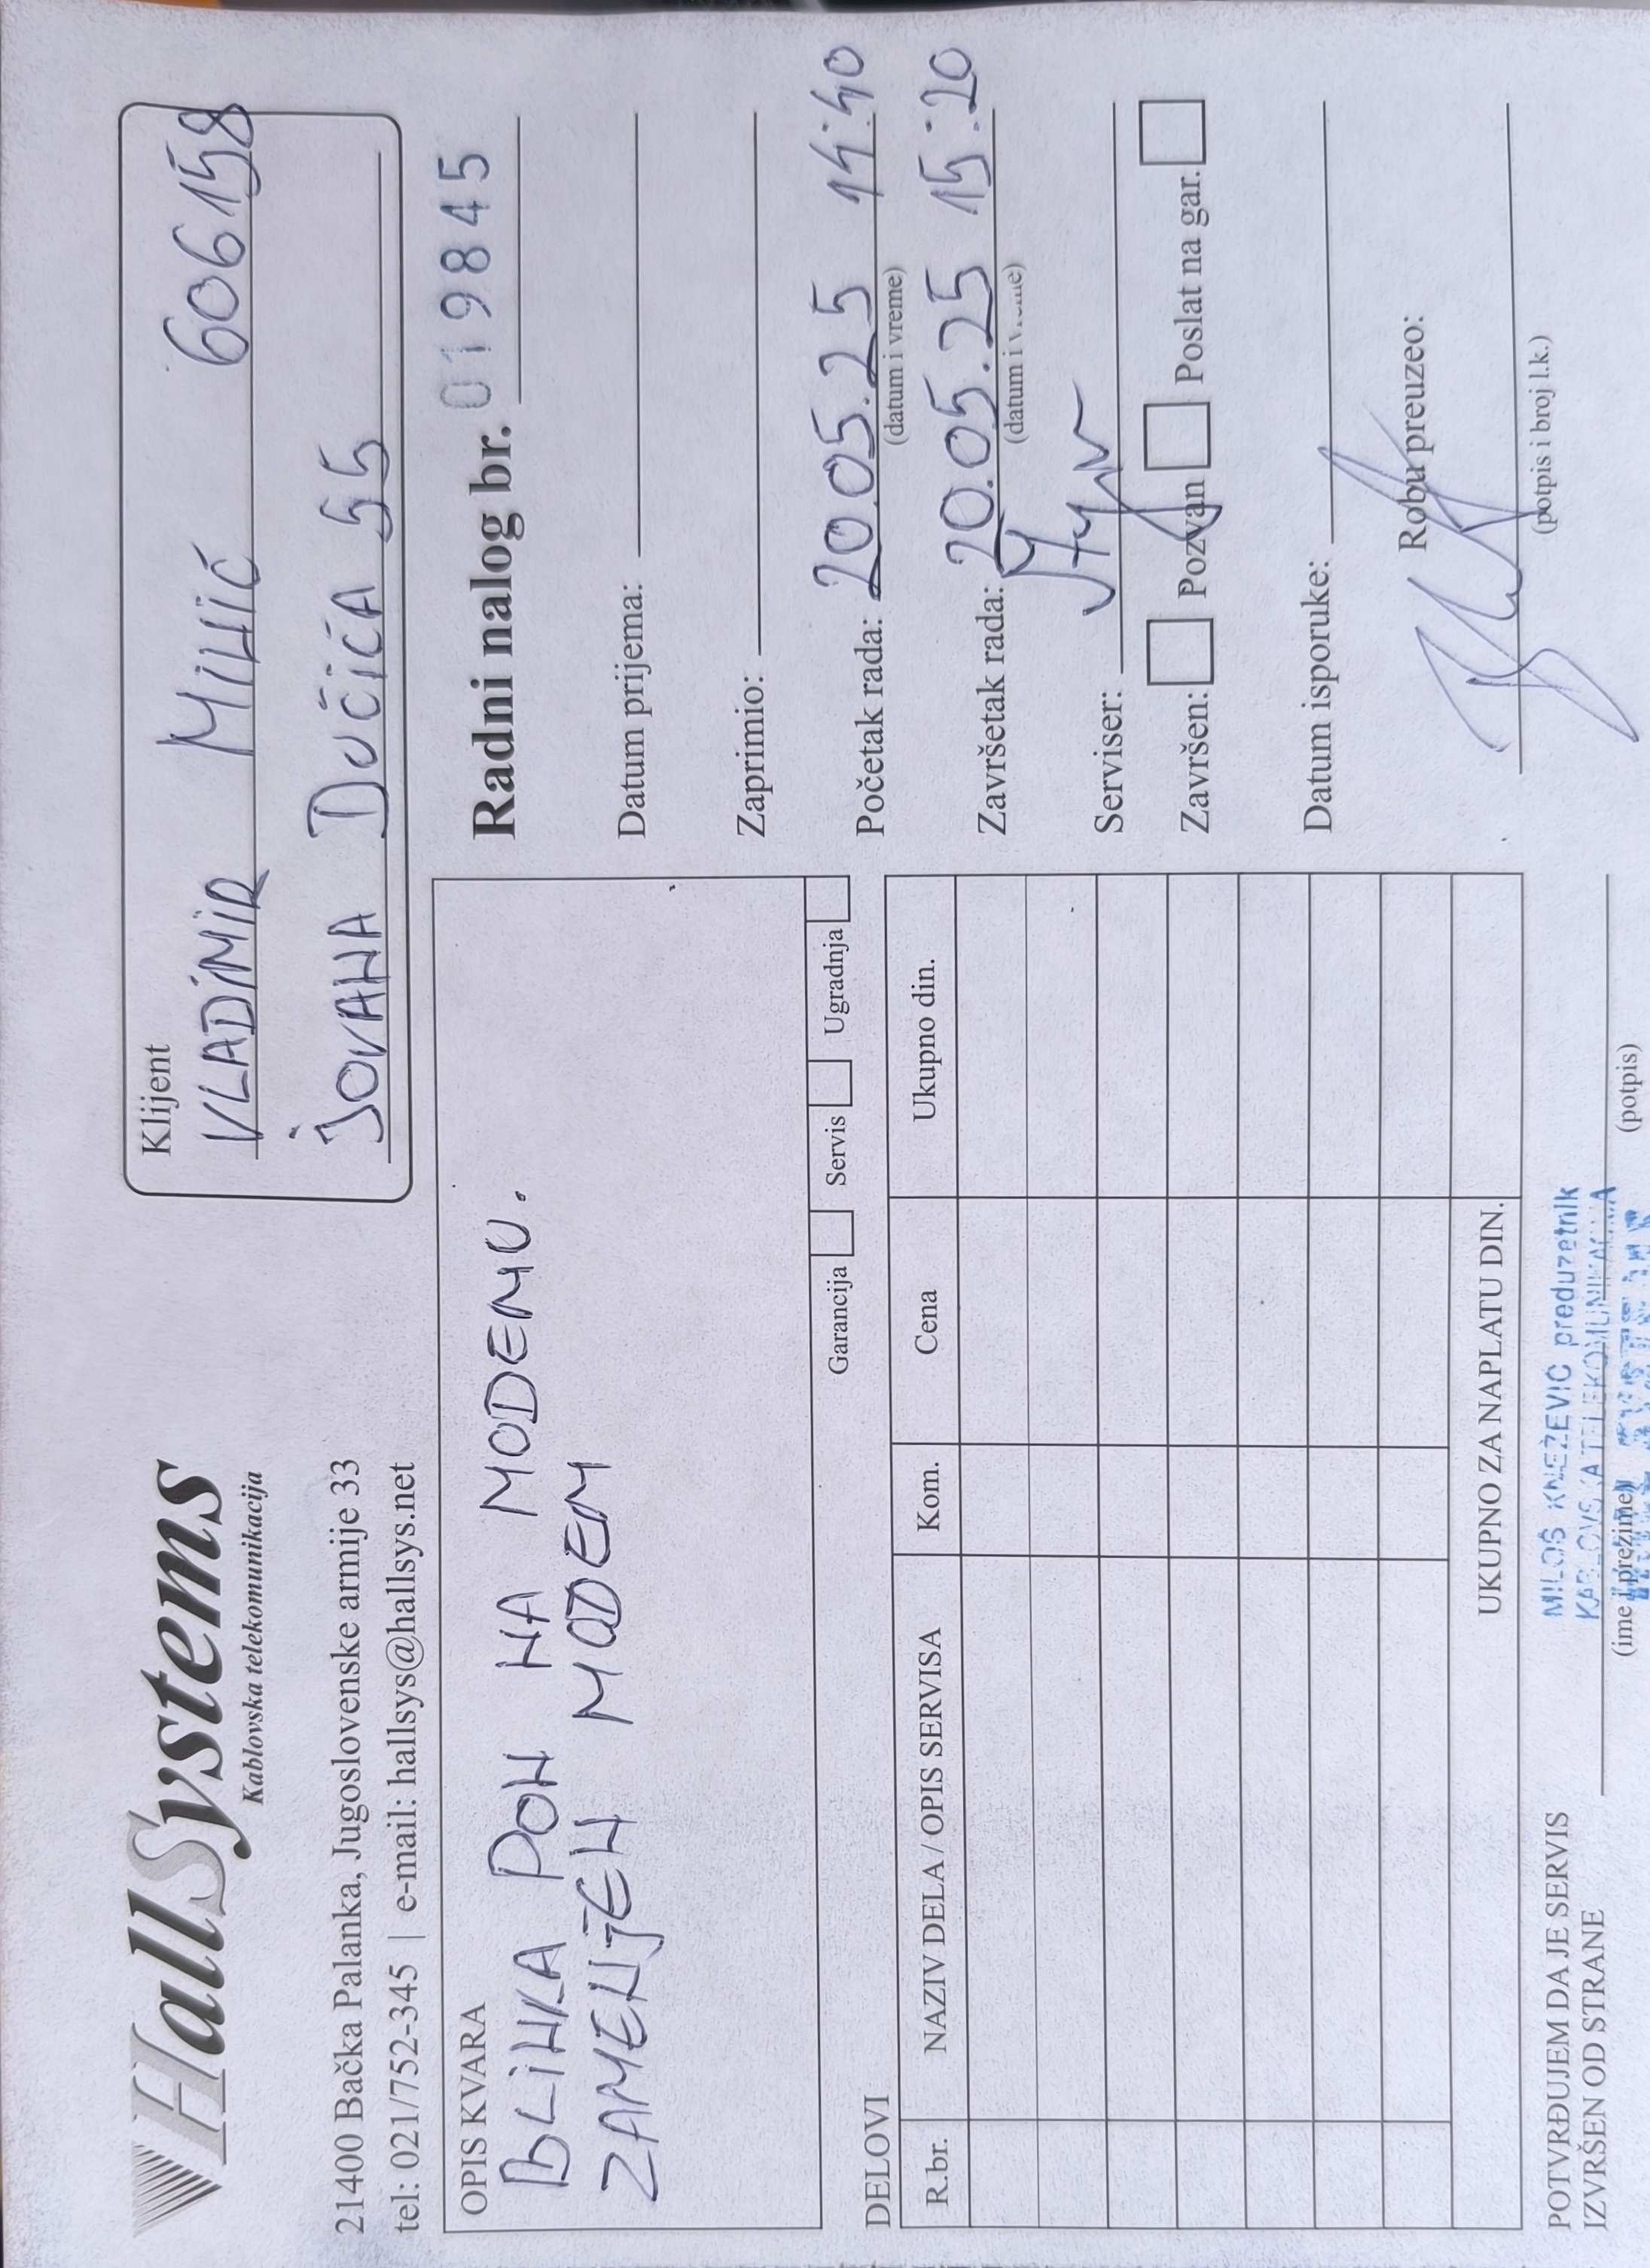 HallSystems
Kablovska telekomunikacija
21400 Bačka Palanka, Jugoslovenske armije 33
tel: 021/752-345 | e-mail: hallsys@hallsys.net
Klijent
VLADIMIR MILIĆ 606158
JOVANA DUČIĆA 55
OPIS KVARA
BLINKA PON NA MODEMU.
ZAMENJEN MODEM
Garancija Servis Ugradnja
Radni nalog br. 019845
Datum prijema:
Zaprimio:
Početak rada: 20.05.25 14:40
(datum i vreme)
Završetak rada: 20.05.25 15:20
(datum i vreme)
Serviser:
Završen: Pozvan Poslat na gar.
Datum isporuke:
Robu preuzeo:
(potpis i broj l.k.)
DELOVI
R.br. NAZIV DELA / OPIS SERVISA Kom. Cena Ukupno din.
UKUPNO ZA NAPLATU DIN.
POTVRĐUJEM DA JE SERVIS
IZVRŠEN OD STRANE
MILOŠ KNEŽEVIĆ preduzetnik
KABLOVSKA TELEKOMUNIKACIJA
(ime i prezime) (potpis)